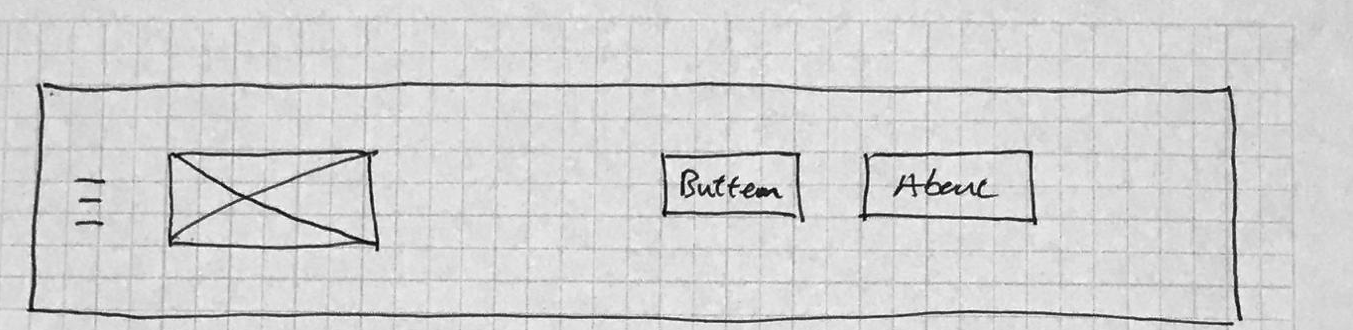 Button
About